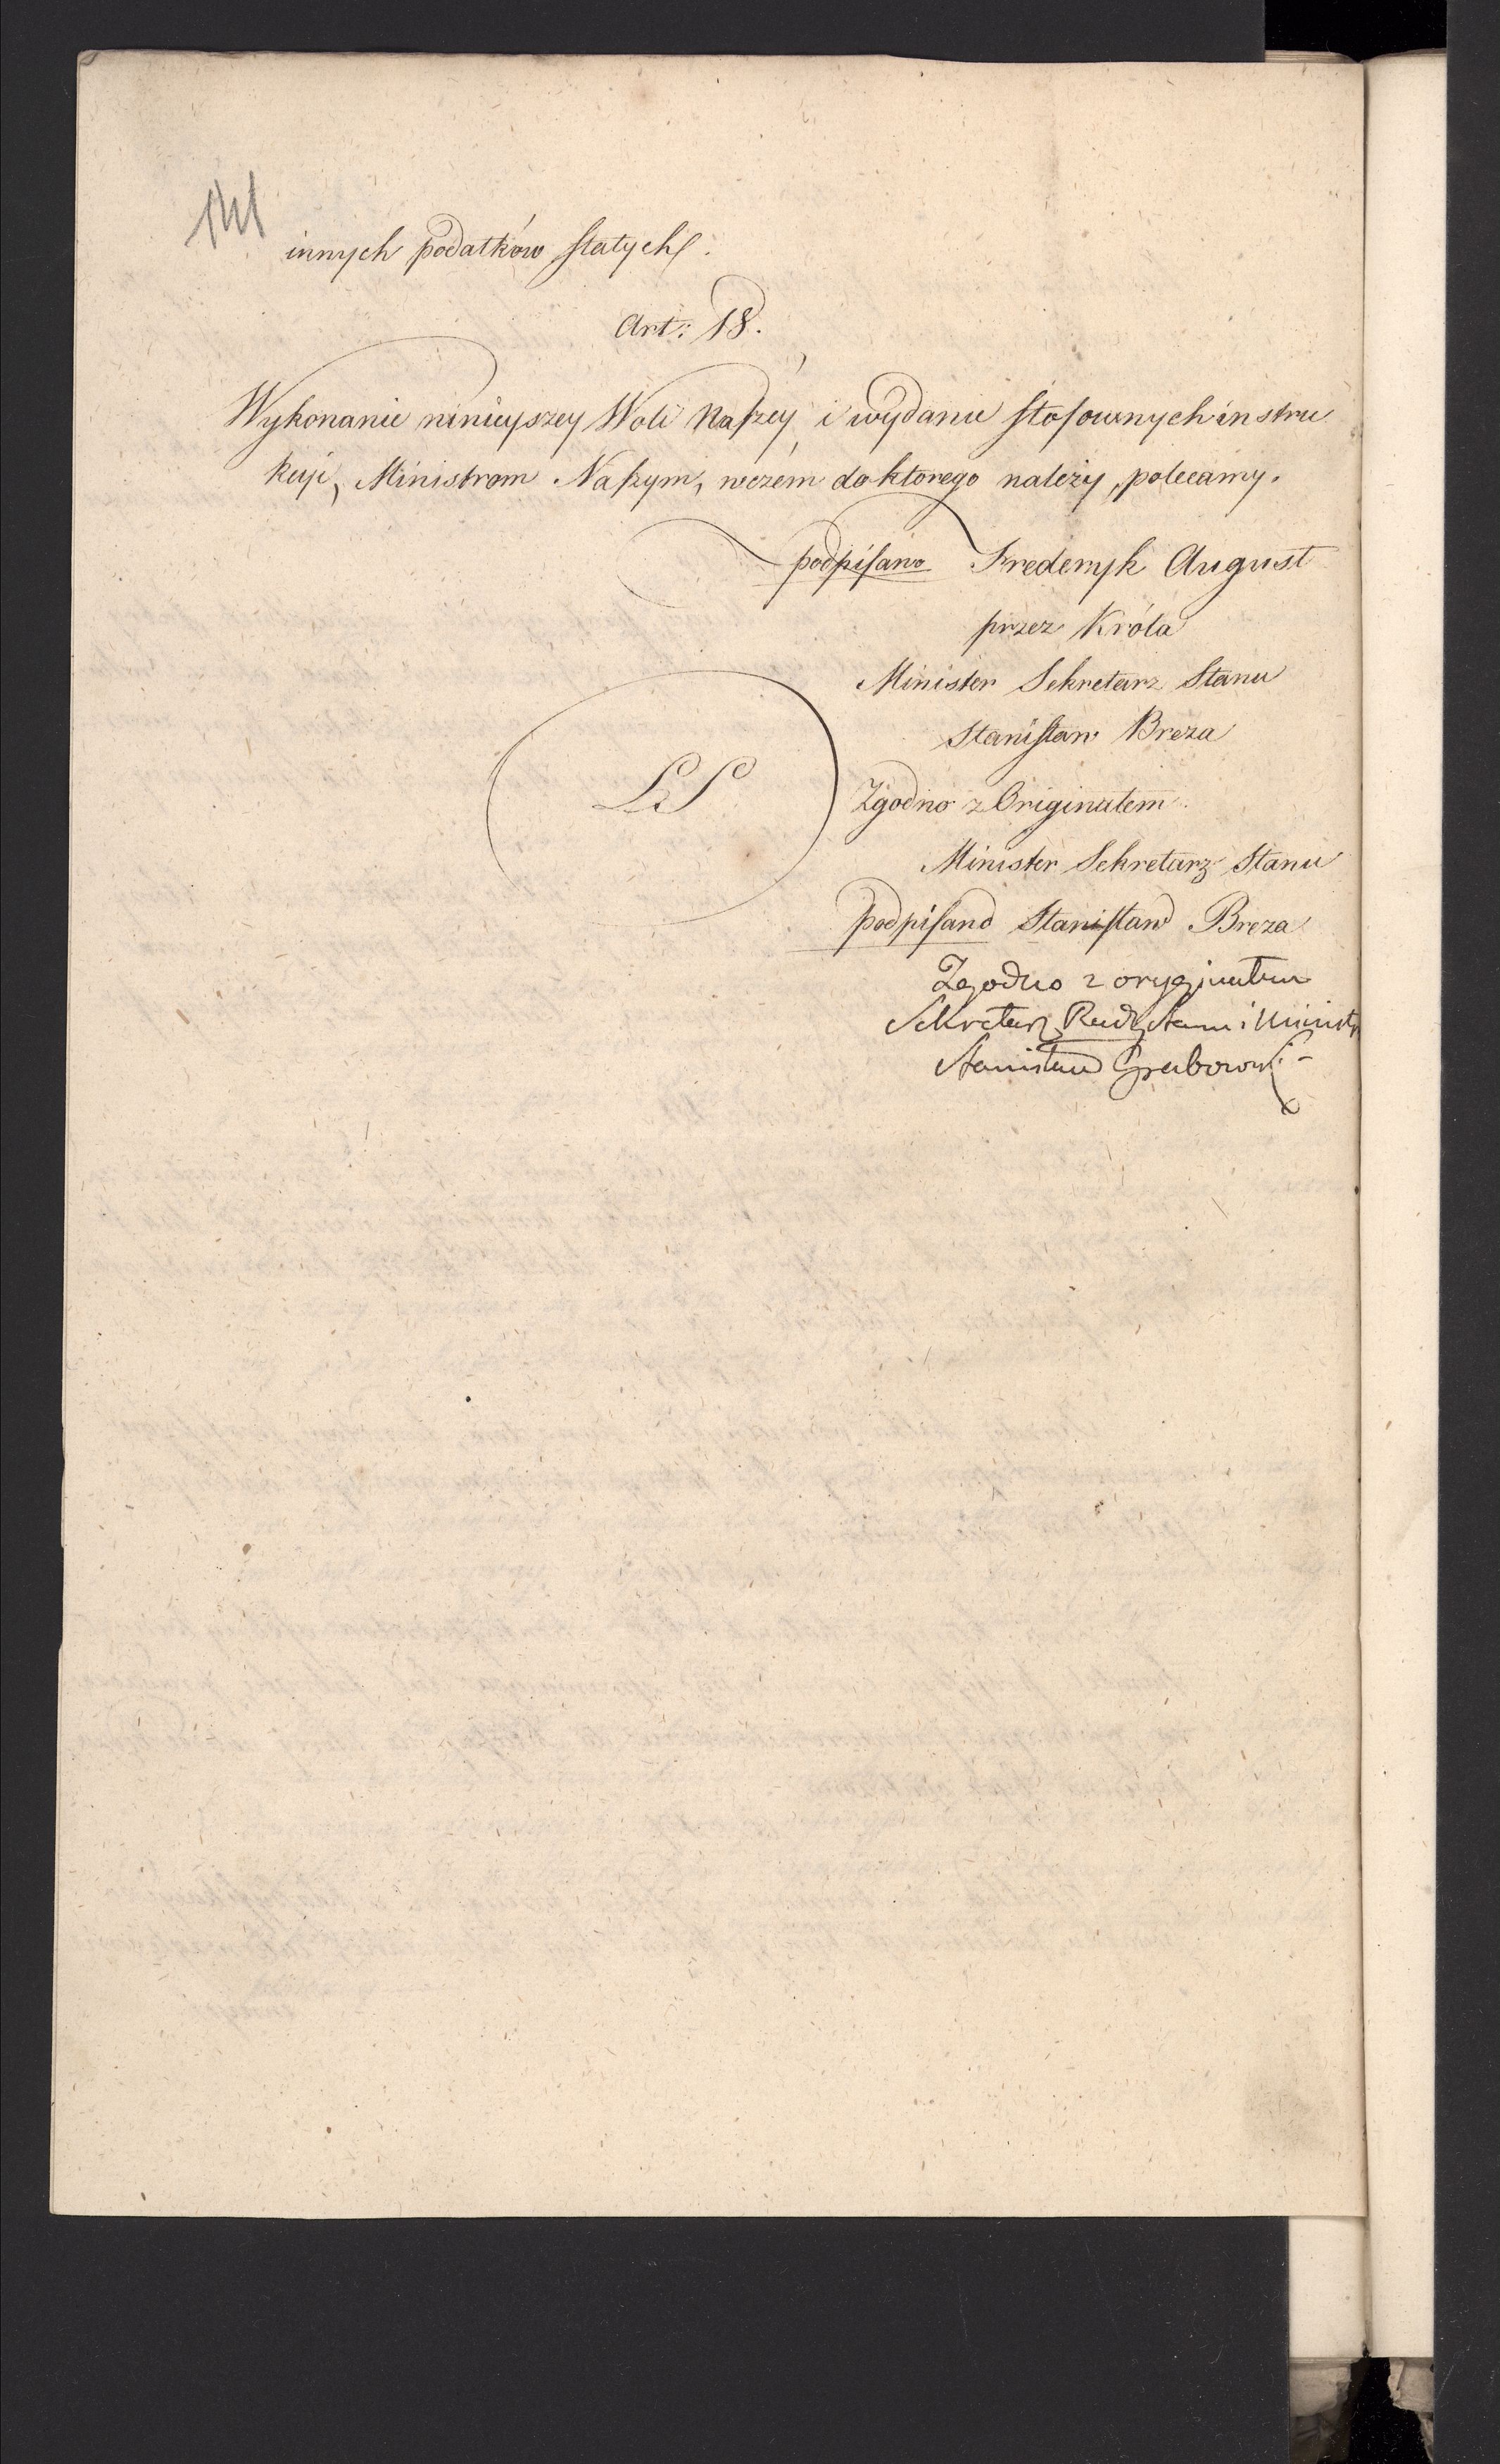 141
innych podatków stałych.
Art: 18.
Wykonanie ninieyszey Woli Naszey, i wydanie stosownych instru
kcyi, Ministrom Naszym, wczém do ktorego należy, polecamy.
podpisano Frederyk August
przez Króla
Minister Sekretarz Stanu
Stanisław Breza
LS
Zgodno z Originałem
Minister Sekretarz Stanu
podpisano Stanisław Breza
Zgodno z oryginałem
Sekretarz Rady Stanu i Ministr
Stanisław Grabowski